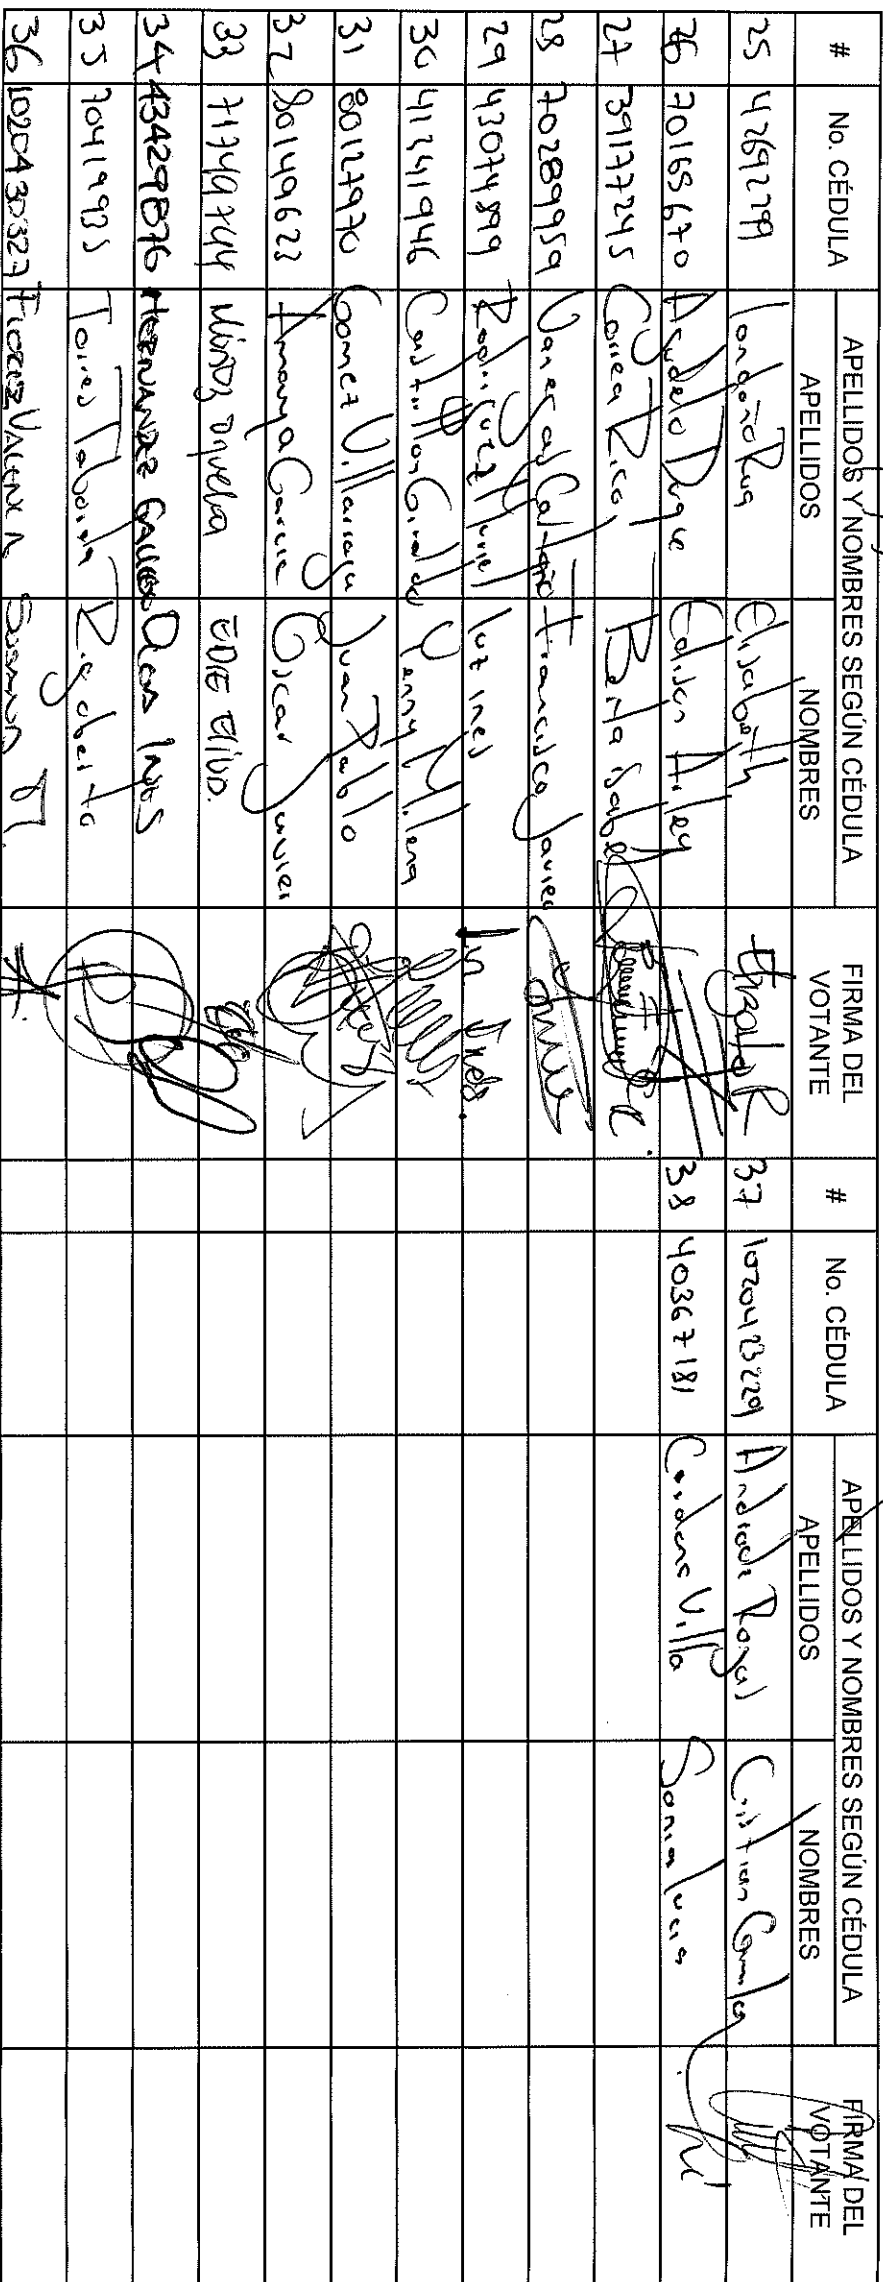 # No. CÉDULA APELLIDOS Y NOMBRES SEGÚN CÉDULA FIRMA DEL VOTANTE # No. CÉDULA APELLIDOS Y NOMBRES SEGÚN CÉDULA FIRMA DEL VOTANTE
APELLIDOS NOMBRES APELLIDOS NOMBRES
25 42692799 Londoño Rua Elisabeth 37 1020423229 Andrade Rojas Cristian Camilo
26 70165670 Agudelo Duque Edison Arley 38 40367181 Cardona Villa Sonia Lucia
27 39177245 Correa Rico Berta Isabel
28 70289959 Vanegas Castaño Francisco Javier
29 43074899 Rodriguez Muriel luz ines
30 41341946 Castrillon Giraldo Yenny Milena
31 80127970 Gomez Villarraga Juan Pablo
32 80149623 Amaya Garcia Oscar Javier
33 71749744 Muñoz EDIE
34 43429876 HERNANDEZ
35 70419935 Torres Taborda Rigoberto
36 1020430327 FLOREZ VALENCIA Susana M.